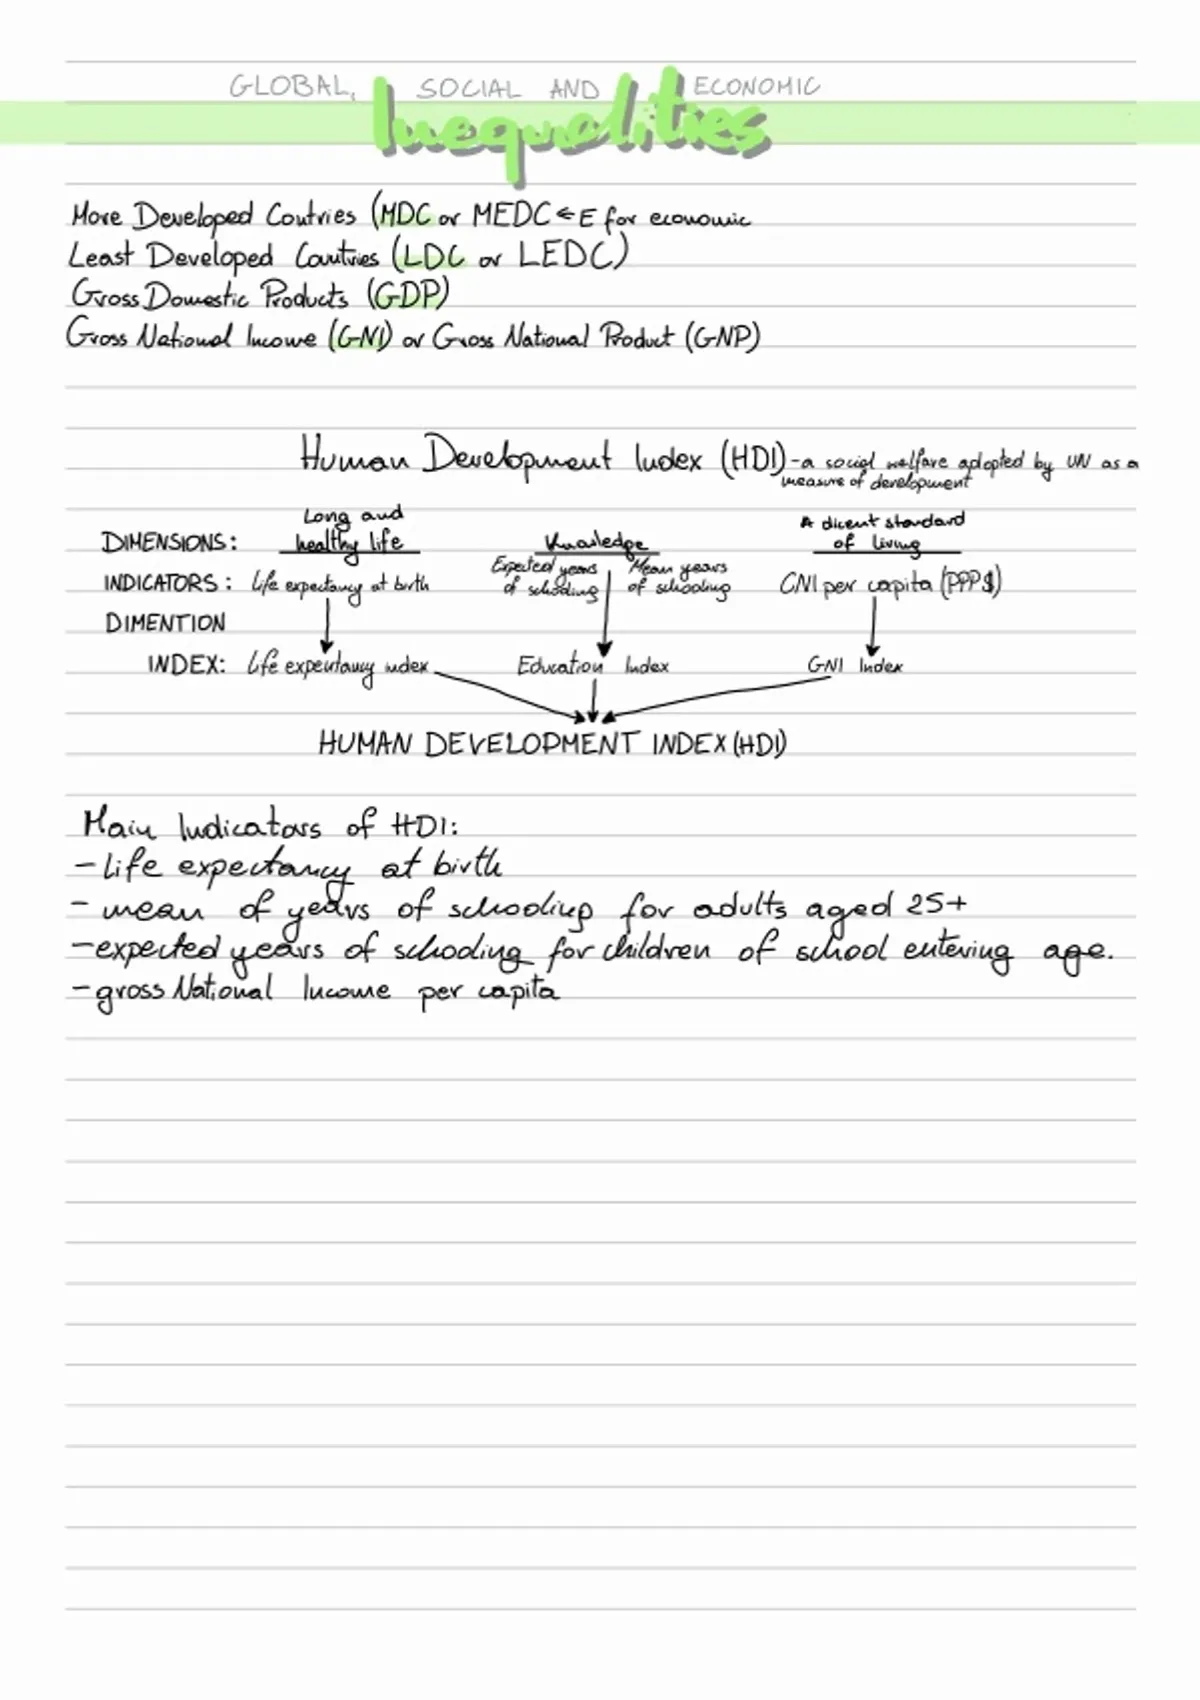 GLOBAL, SOCIAL AND ECONOMIC
Inequalities
More Developed Coutries (MDC or MEDC ← E for economic
Least Developed Coutries (LDC or LEDC)
Gross Domestic Products (GDP)
Gross National Income (GNI) or Gross National Product (GNP)
Human Development Index (HDI) - a social welfare adopted by UN as a
measure of development
Long and A dicent standard
DIMENSIONS: healthy life Knowledge of living
INDICATORS: Life expectancy at birth Expected years of schooling Mean years of schooling GNI per capita (PPP $)
DIMENTION
INDEX: Life expectancy index Education Index GNI Index
HUMAN DEVELOPMENT INDEX (HDI)
Main Indicators of HDI:
- life expectancy at birth
- mean of years of schooling for adults aged 25+
- expected years of schooling for children of school entering age.
- gross National Income per capita